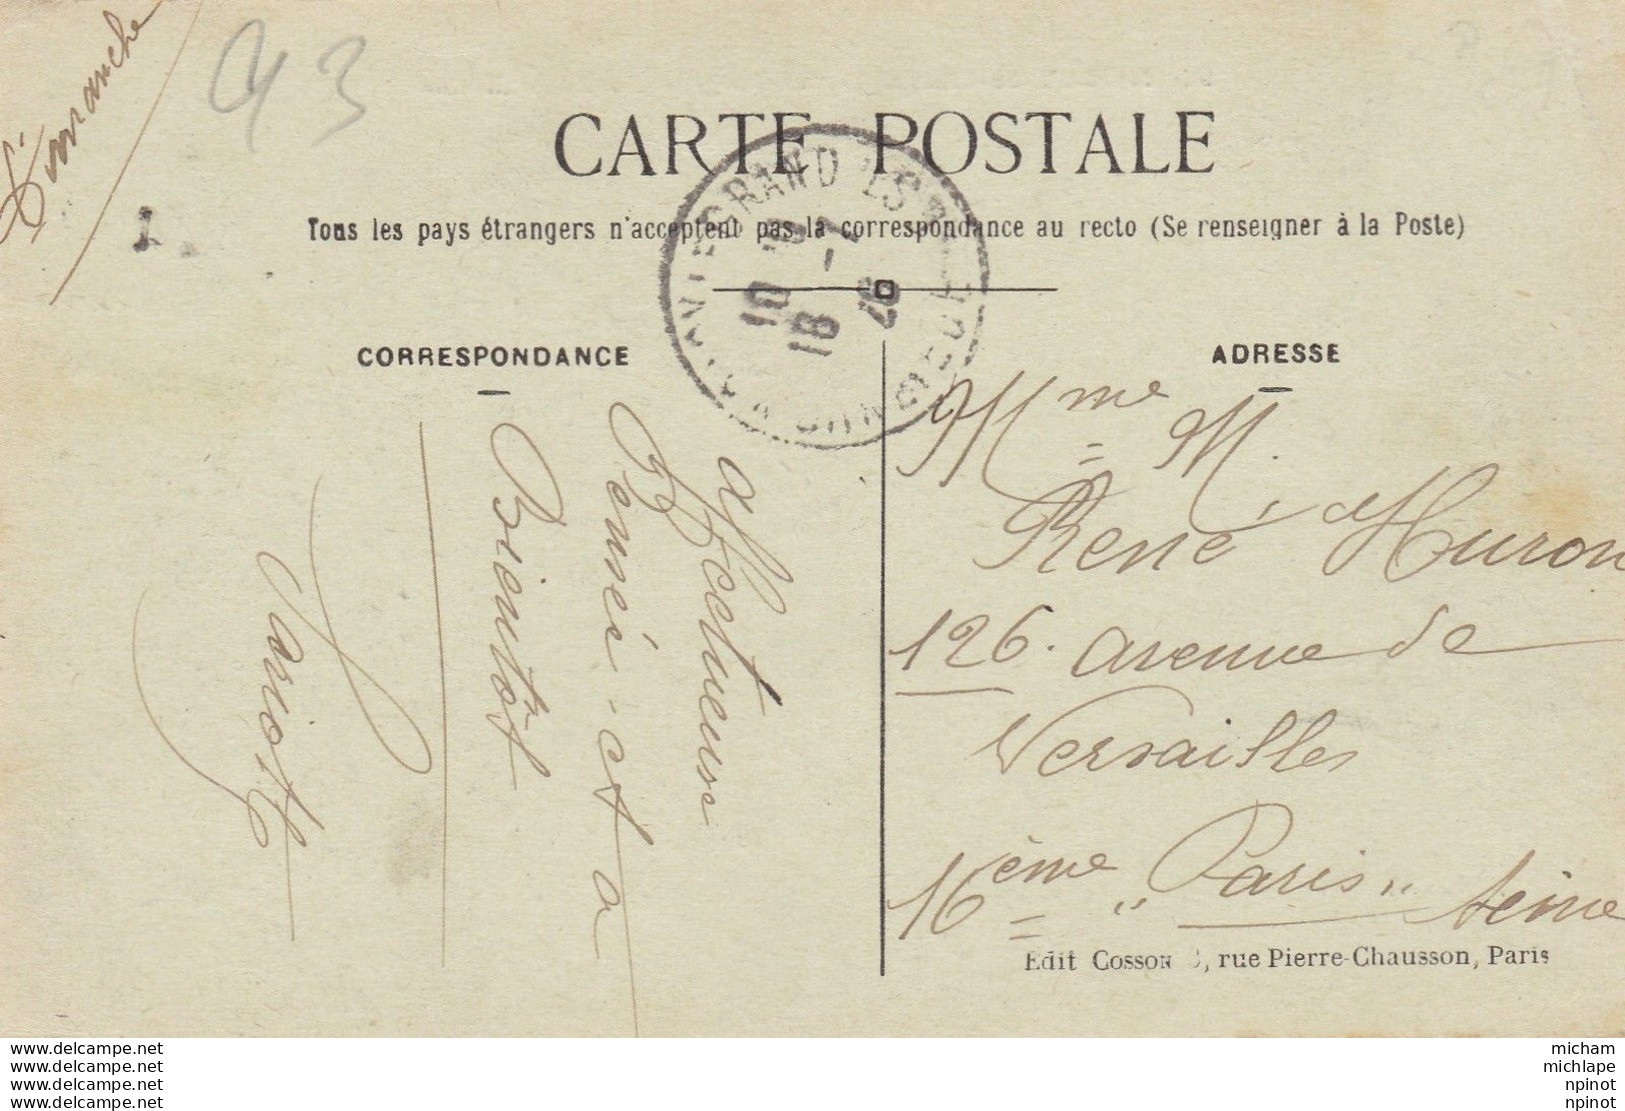 Dimanche
93
CARTE POSTALE
Tous les pays étrangers n'acceptent pas la correspondance au recto (Se renseigner à la Poste)
1
10
18 -7
26
CORRESPONDANCE
Affectueuse
Pensée et a
Bientôt
ADRESSE
Mme M.
René Huron
126. avenue de
Versailles
16ème "Paris" Seine
Edit Cosson, rue Pierre-Chausson, Paris
www.delcampe.net
www.delcampe.net
www.delcampe.net
www.delcampe.net
micham
michlape
npinot
npinot